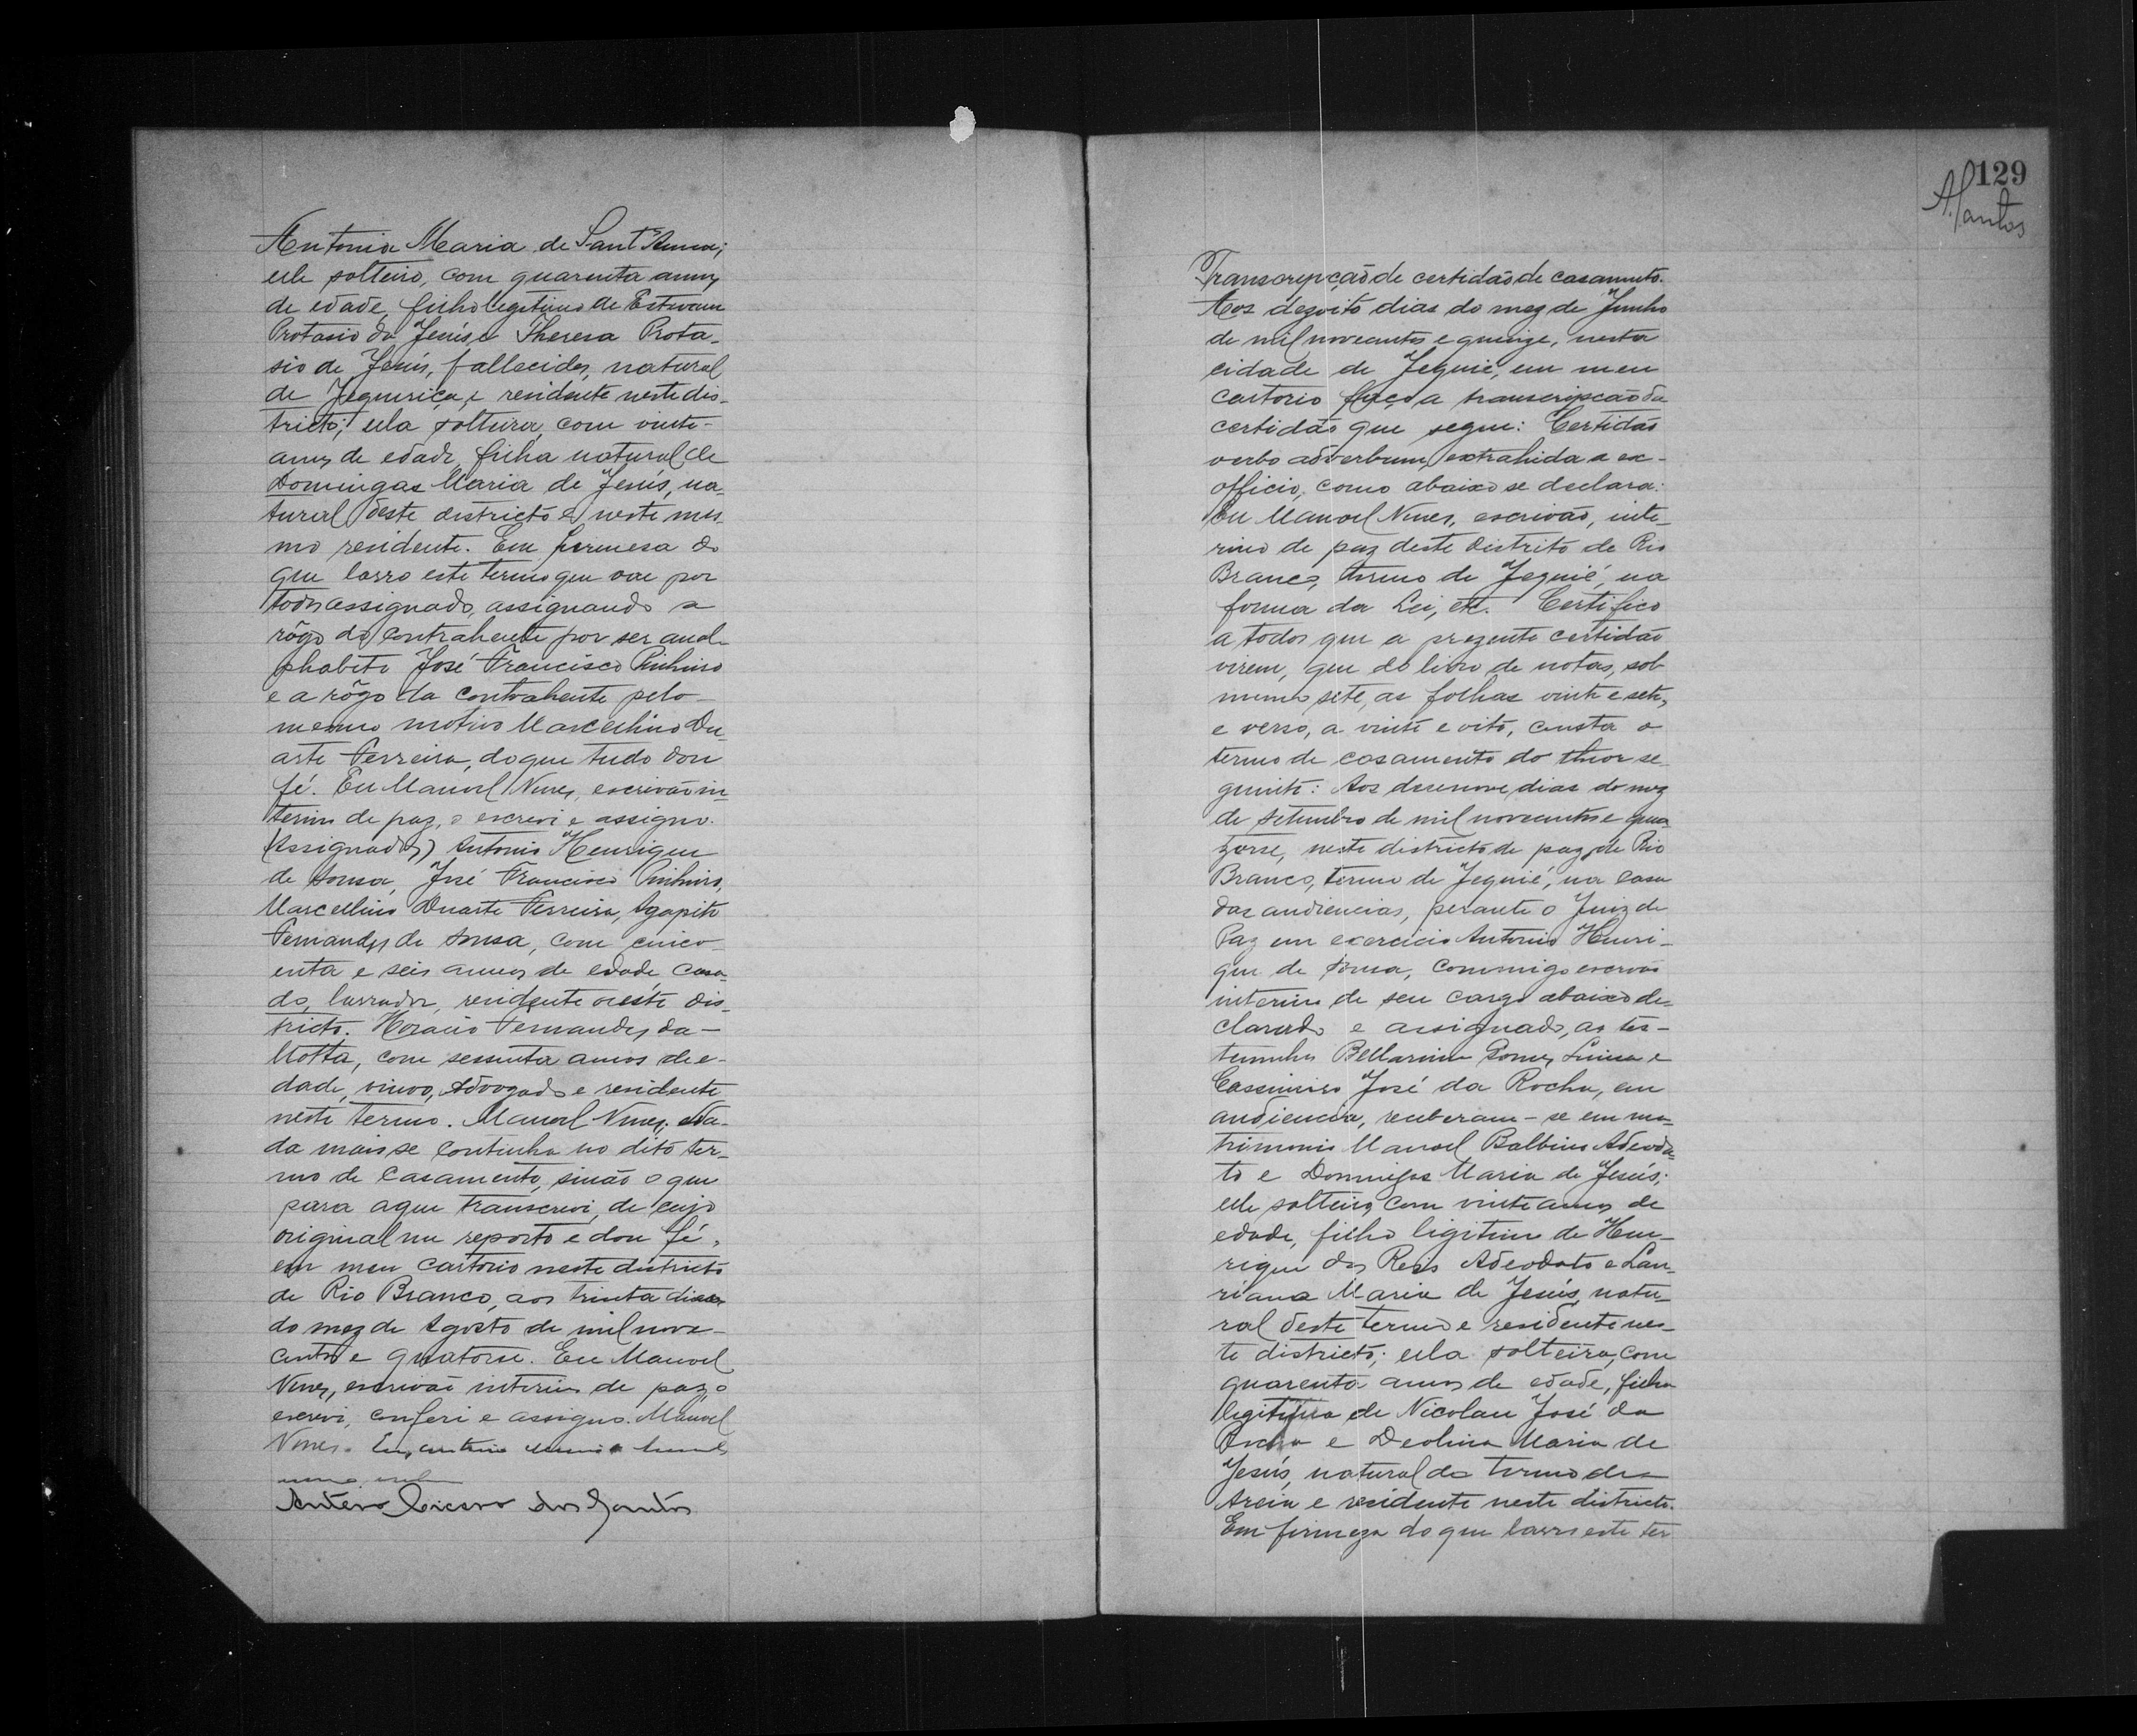 Antonia Maria de Sant'Anna;
elle solteiro, com quarenta annos
de edade, filho legitimo de Estevam
Protasio de Jesús e Theresa Prota-
sio de Jesús, fallecidos, natural
de Jequiriça, e residente neste dis-
tricto; ella solteira, com vinte
annos de edade, filha natural de
Domingas Maria de Jesús, na-
tural deste districto e neste mes-
mo residente. Em firmesa do
que lavro este termo que vae por
todos assignado, assignando a
rôgo do contrahente por ser anal-
phabeto José Francisco Pinheiro
e a rôgo da contrahente pelo
mesmo motivo Marcellino Du-
arte Ferreira, do que tudo dou
fé. Eu Manoel Nunes, escrivão in-
terino de paz, o escrevi e assigno.
(Assignados) Antonio Henrique
de Sousa, José Francisco Pinheiro,
Marcellino Duarte Ferreira, Agapito
Fernandes de Sousa, com cinco-
enta e seis annos de edade, casa-
do, lavrador, residente neste dis-
tricto. Horacio Fernandes da
Motta, com sessenta annos de e-
dade, viuvo, Advogado e residente
neste termo. Manoel Nunes. Na-
da mais se continha no dito ter-
mo de casamento, sinão o que
para aqui transcrevi, de cujo
original me reporto e dou fé,
em meu cartorio neste districto
de Rio Branco, aos trinta dias
do mez de Agosto de mil nove-
centos e quatorse. Eu Manoel
Nunes, escrivão interino de paz, o
escrevi, conferi e assigno. Manoel
Nunes. Eu,
Antero Cicero dos Santos
129
A. Santos
Transcripção de certidão de casamento.
Aos dezoito dias do mez de Junho
de mil novecentos e quinze, nesta
cidade de Jequié, em meu
cartorio faço a transcripção da
certidão que segue: Certidão
verbo adverbum, extrahida a ex-
officio, como abaixo se declara:
Eu Manoel Nunes, escrivão, inte-
rino de paz deste distrito de Rio
Branco, termo de Jequié, na
forma da Lei, etc. Certifico
a todos que a prezente certidão
virem, que do livro de notas, sob
numero sete, as folhas vinte e sete,
e verso, a vinte e oito, consta o
termo de casamento do theor se-
guinte: Aos desenove dias do mez
de setembro de mil novecentos e qua-
torse, neste districto de paz de Rio
Branco, termo de Jequié, na casa
das audiencias, perante o Juiz de
Paz em exercicio Antonio Henri-
que de Sousa, commigo escrivão
interino de seu cargo abaixo de-
clarado e assignado, as tes-
temunhas Bellarmino Gomes e
Cassimiro José da Rocha, em
audiencia, receberam-se em ma-
trimonio Manoel Balbino Adeoda-
to e Domingas Maria de Jesús;
elle solteiro, com vinte annos de
edade, filho ligitimo de Hen-
rique dos Reis Adeodato e Lau-
riana Maria de Jesús, natu-
ral deste termo e residente nes-
te districto; ella solteira, com
quarenta annos de edade, filha
legitima de Nicolau José da
Rocha e Deolina Maria de
Jesús, natural do termo de
Areia e residente neste districto.
Em firmeza do que lavro este ter-